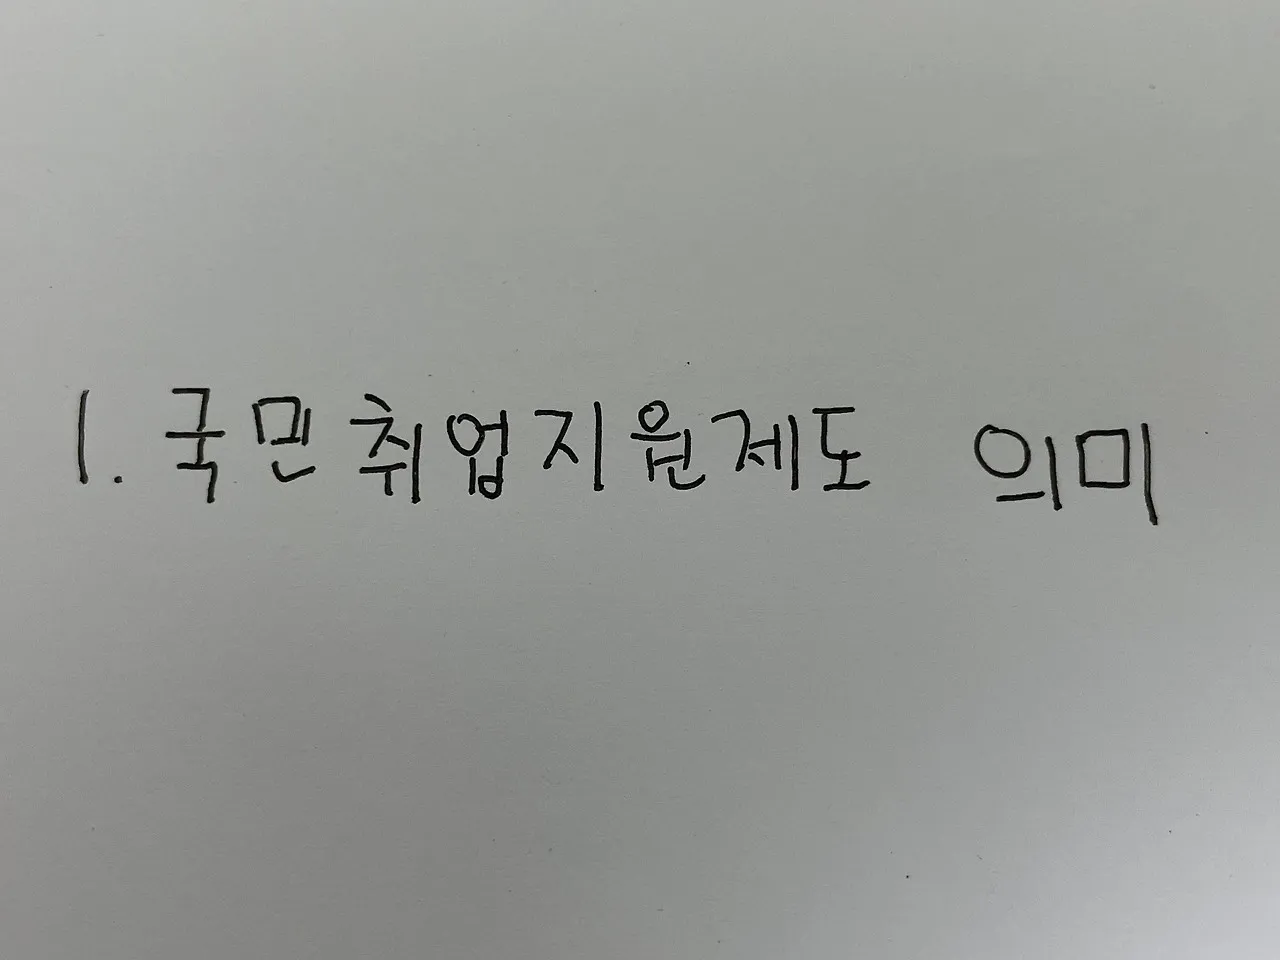 1. 국민취업지원제도 의미